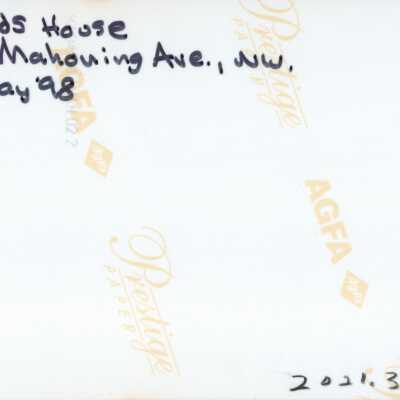 ds House
Mahoning Ave., NW.
ay '98
AGFA
Agfa
Prestige
PAPER
AGFA
Agfa
Prestige
PAPER
2021.3